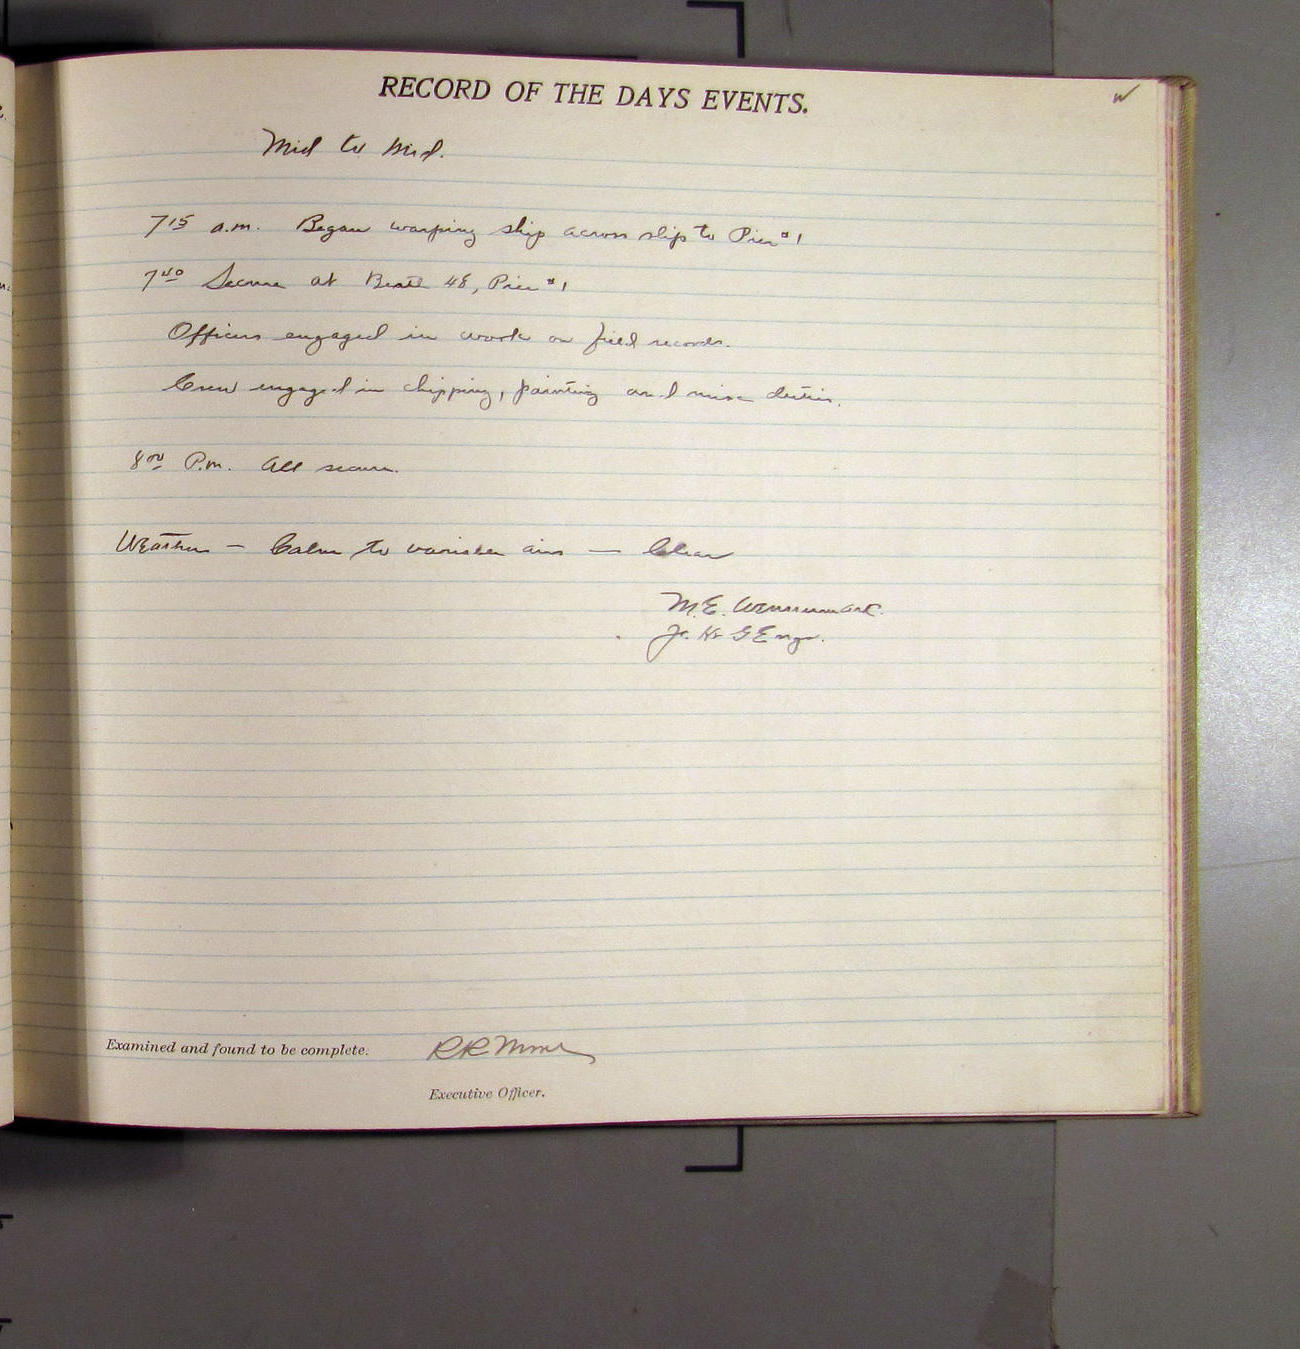 RECORD OF THE DAYS EVENTS.
Mid to Mid.
7¹⁵ a.m. Began warping ship across slip to Pier #1
7⁴⁰ Secure at Berth 48, Pier #1
Officers engaged in work on field records.
Crew engaged in chipping, painting and misc duties.
8⁰⁰ P.m. All secure.
Weather — Calm to variable airs — Clear
M.E. Wennermark
Jr. H & G Engr.
Examined and found to be complete. RR Moore
Executive Officer.